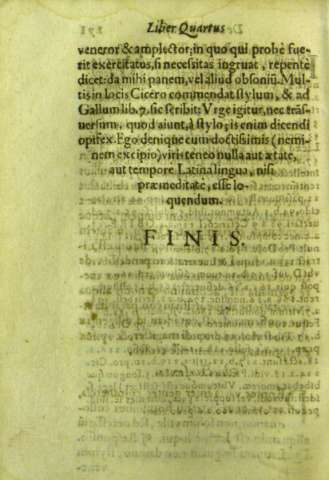 Liber Quartus
veneror & amplector; in quo qui probè fue-
rit exercitatus, si necessitas ingruat, repente
dicet: da mihi panem, vel aliud obsoniū. Mul-
tis in locis Cicero commendat stylum, & ad
Gallum lib. 7. sic scribit: Vrge igitur, nec trās-
uersum, quod aiunt, à stylo; is enim dicendi
opifex. Ego denique cum doctissimis (nemi-
nem excipio) viris teneo nulla aut ætate,
aut tempore Latina lingua, nisi
præmeditate, esse lo-
quendum.
FINIS.